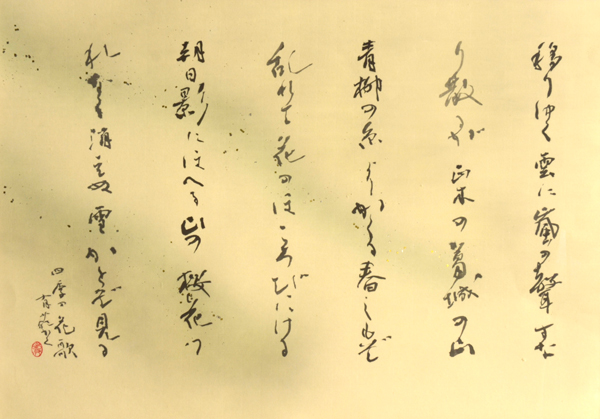 移りゆく雲に嵐の聲す な
り散るか 正木の葛城の山
青柳の糸よりかくる春しもぞ
乱れて花のほころびにける
朝日影 にほへる山の桜花つ
れなく消えぬ雪かとぞ見る
四季の花歌